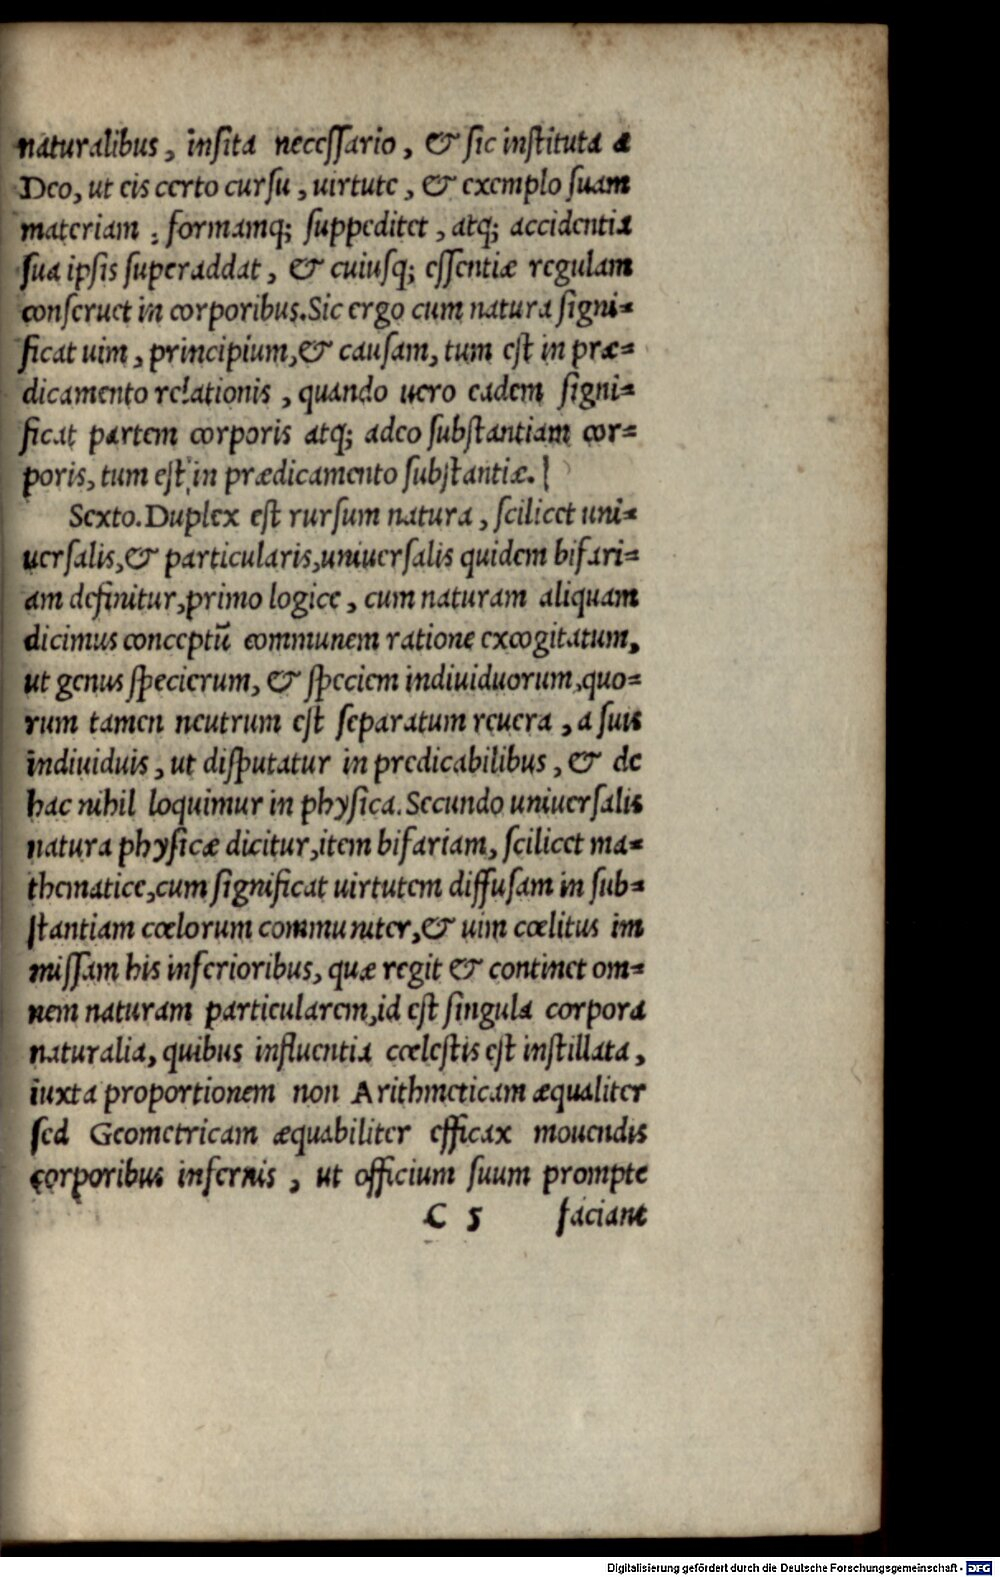 naturalibus, insita necessario, & sic instituta a
Deo, ut eis certo cursu, uirtute, & exemplo suam
materiam, formamq; suppeditet, atq; accidentia
sua ipsis superaddat, & cuiusq; essentiæ regulam
conseruet in corporibus. Sic ergo cum natura signi=
ficat uim, principium, & causam, tum est in præ=
dicamento relationis, quando uero eadem signi=
ficat partem corporis atq; adeo substantiam cor=
poris, tum est in prædicamento substantiæ.
Sexto. Duplex est rursum natura, scilicet uni=
uersalis, & particularis, uniuersalis quidem bifari=
am definitur, primo logice, cum naturam aliquam
dicimus conceptū communem ratione excogitatum,
ut genus specierum, & speciem indiuiduorum, quo=
rum tamen neutrum est separatum reuera, a suis
indiuiduis, ut disputatur in predicabilibus, & de
hac nihil loquimur in physica. Secundo uniuersalis
natura physicæ dicitur, item bifariam, scilicet ma=
thematice, cum significat uirtutem diffusam in sub=
stantiam cœlorum communiter, & uim cœlitus im
missam his inferioribus, quæ regit & continet om=
nem naturam particularem, id est singula corpora
naturalia, quibus influentia cœlestis est instillata,
iuxta proportionem non Arithmeticam æqualiter
sed Geometricam æquabiliter efficax mouendis
corporibus infernis, ut officium suum prompte
C 5 faciant
Digitalisierung gefördert durch die Deutsche Forschungsgemeinschaft - DFG